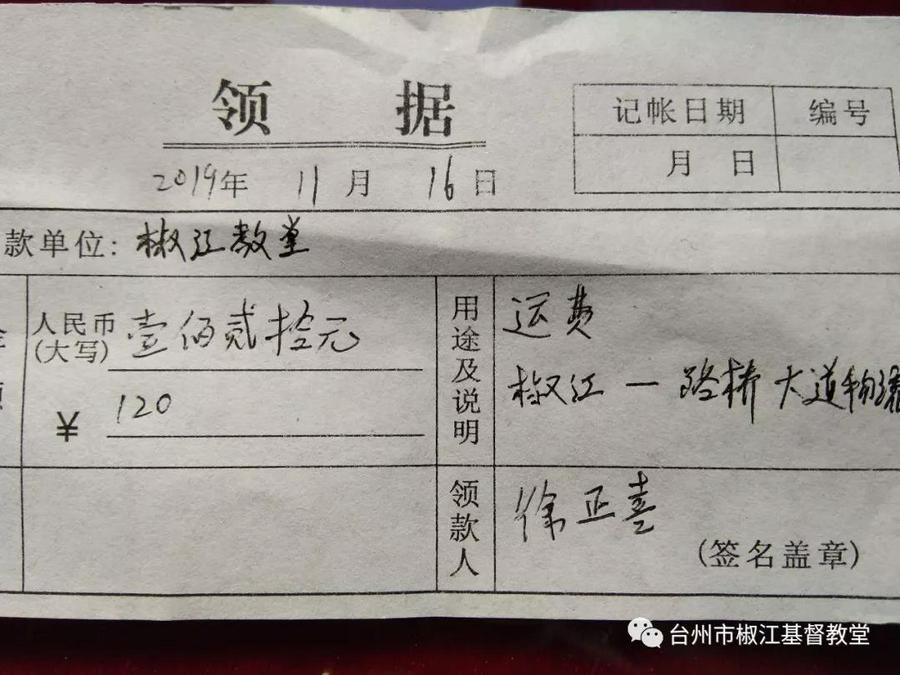 领 据
记帐日期 编号
月 日
2019年 11月 16日
款单位: 椒江教堂
人民币(大写) 壹佰贰拾元
¥ 120
用途及说明
运费
椒江 — 路桥大道物流
领款人
徐正喜
(签名盖章)
台州市椒江基督教堂